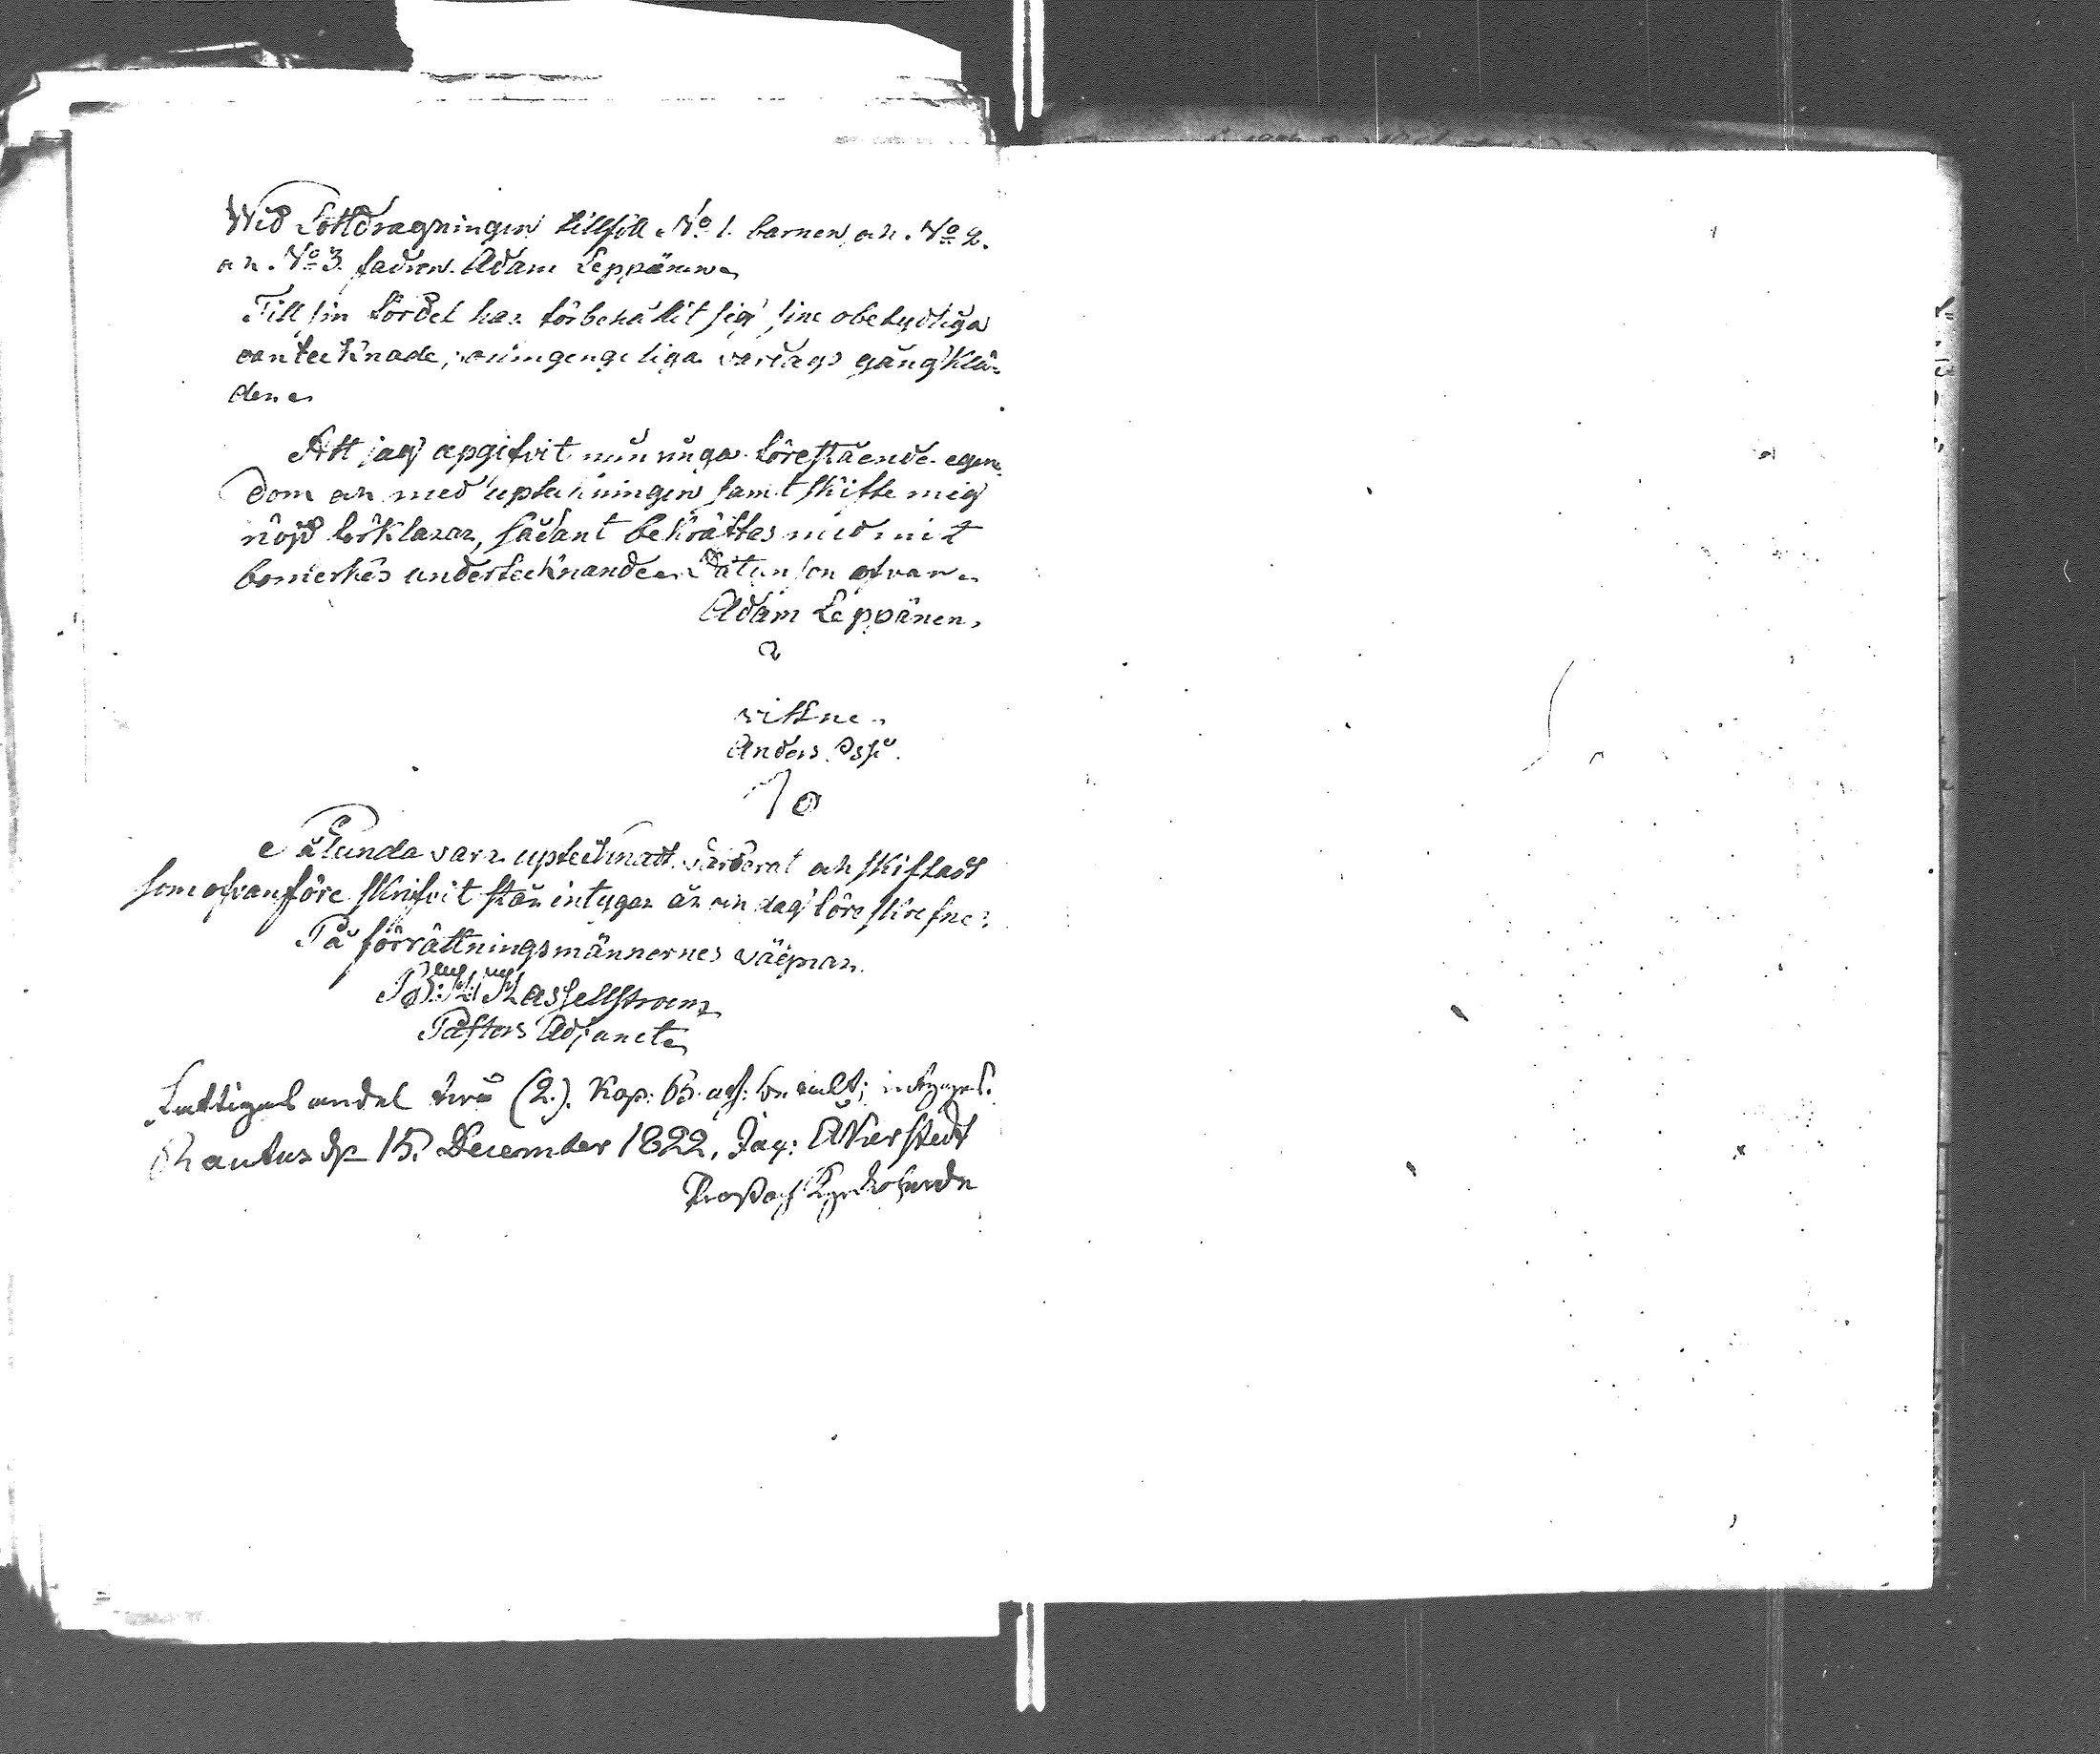 Wid Lottdragningen tillföll No 1. barnen, och. No 2.
och. No 3. fadren. Adam Leppänen
Till sin fördel har förbehållit sig sine obetydliga
oantecknade, oumgengeliga vardags gångklä-
den
Att jag upgifvit min förestående egen
dom och med uptekningen samt skifte mig
nöjd förklarar, sådant bekräftas med mit
bomerkes undertecknande Datum som ofvan
Adam Leppänen,
vittne
Anders
Sålunda vara uptecknadt. värderat och skiftadt
som ofvanföre skrifvit står intygar år och dag föreskrefne:
På förrättningsmännernes vägnar
Hasselstroem
Pastors Adjunct
Fattigas andel två (2.) Kop: betalt; intygas.
Rautus d. 15. December 1822. Jag: Åkerstedt
Prost och Kyrkoherde